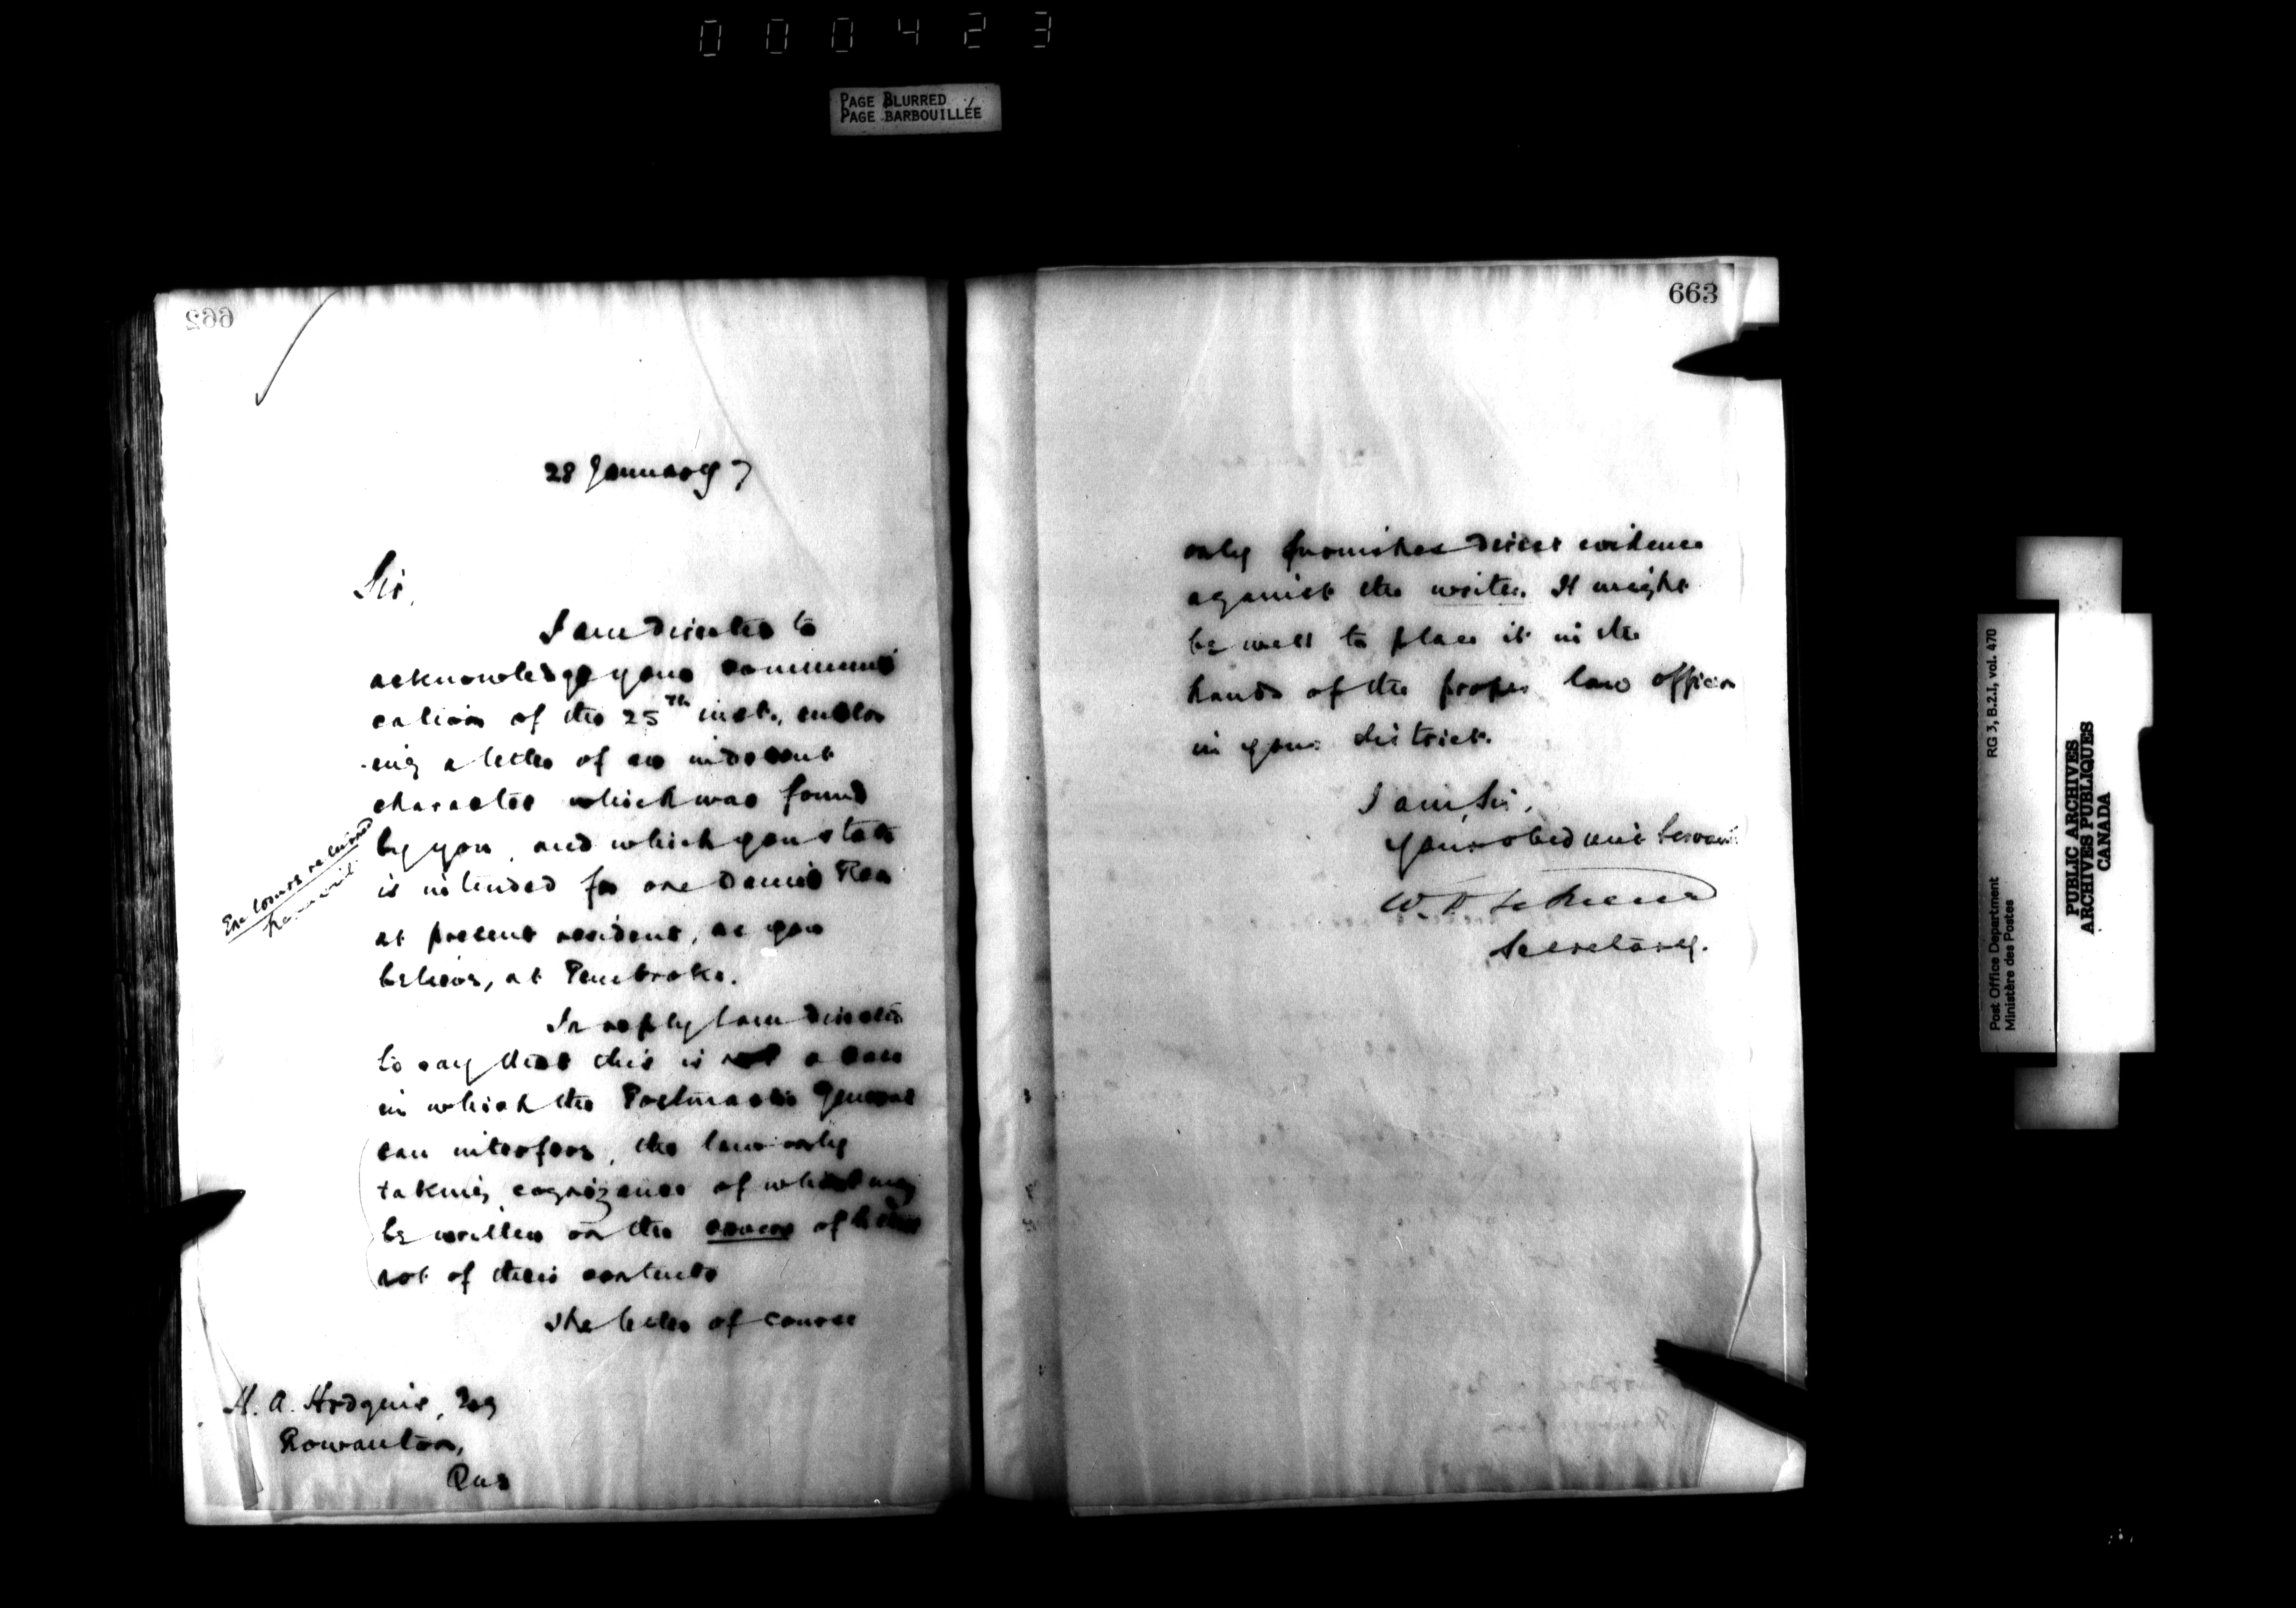 000423
PAGE BLURRED
PAGE BARBOUILLÉE
662
28 January 7
Sir,
I am directed to
acknowledge your communi
cation of the 25th inst., enclos
-ing a letter of an indecent
character which was found
by you, and which you state
is intended for one Daniel
at present resident, as you
believe, at Pembroke.
In reply I am directed
to say that this is not a case
in which the Postmaster General
can interfere, the law only
taking cognizance of what may
be written on the covers of letters
not of their contents
The letter of course
Enclosures returned
herewith.
H. A. Hodgins, Esq
Rowanton,
Que
663
only furnishes direct evidence
against the writer. It might
be well to place it in the
hands of the proper law officer
in your district.
I am, Sir,
Your obedient Servant
W. D. LeSueur
Secretary.
Post Office Department
Ministère des Postes
RG 3, B.2.I, vol. 470
PUBLIC ARCHIVES
ARCHIVES PUBLIQUES
CANADA